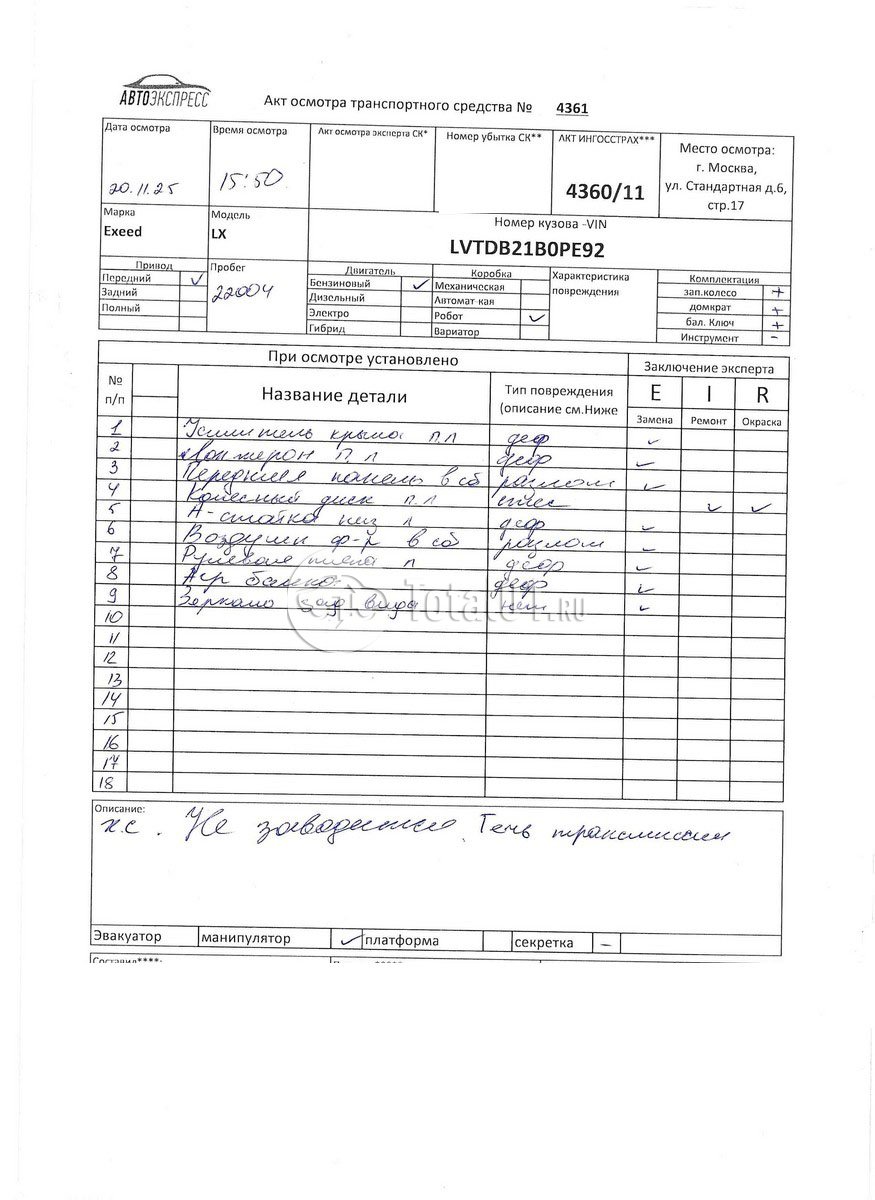 АВТОЭКСПРЕСС
Акт осмотра транспортного средства № 4361
Дата осмотра
20.11.25
Время осмотра
15:50
Акт осмотра эксперта СК*
Номер убытка СК**
АКТ ИНГОССТРАХ***
4360/11
Место осмотра:
г. Москва,
ул. Стандартная д.6,
стр.17
Марка
Exeed
Модель
LX
Номер кузова -VIN
LVTDB21B0PE92
Привод
Передний ✓
Задний
Полный
Пробег
22004
Двигатель
Бензиновый ✓
Дизельный
Электро
Гибрид
Коробка
Механическая
Автомат-кая
Робот ✓
Вариатор
Характеристика
повреждения
Комплектация
зап.колесо +
домкрат +
бал. Ключ +
Инструмент -
При осмотре установлено
Заключение эксперта
№
п/п
Название детали
Тип повреждения
(описание см.Ниже
E I R
Замена Ремонт Окраска
1 Усилитель крыла п.л деф ✓
2 Лонжерон п л деф ✓
3 Передняя панель в сб разлом ✓
4 Колесный диск п.л ✓ ✓
5 А-стойка низ л деф ✓
6 Воздушн ф-р в сб разлом ✓
7 Рулевая л деф ✓
8 деф ✓
9 Зеркало зад вида нет ✓
10
11
12
13
14
15
16
17
18
Описание:
х.с. Не заводится. Течь трансмиссии
Эвакуатор манипулятор ✓ платформа секретка -
Составил****:
Total01.RU